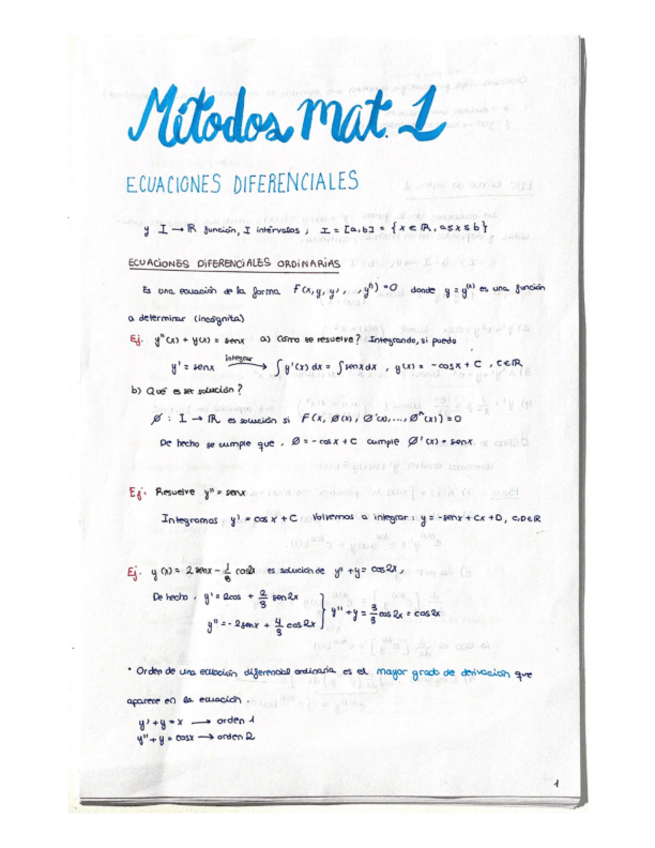 Métodos Mat. 1
ECUACIONES DIFERENCIALES
y I → ℝ función, I intervalos ; I = [a,b] = {x ∈ ℝ, a≤x≤b}
ECUACIONES DIFERENCIALES ORDINARIAS
Es una ecuación de la forma F(x,y,y', ..,yⁿ) = 0 donde y = y(x) es una función
a determinar (incógnita)
Ej. y''(x) + y(x) = senx a) Cómo se resuelve? Integrando, si puedo
y' = senx integrar → ∫y'(x) dx = ∫senx dx , y(x) = -cosx + C , C∈ℝ
b) Qué es ser solución?
Ø : I → ℝ es solución si F(x, Ø(x), Ø'(x),..., Øⁿ(x)) = 0
De hecho se cumple que , Ø = -cos x + C cumple Ø'(x) = senx
Ej. Resuelve y'' = senx
Integramos y' = -cos x + C Volvemos a integrar: y = -senx + Cx + D, C,D∈ℝ
Ej. y(x) = 2 senx - 1/3 cos2x es solución de y'' + y = cos2x,
De hecho , y' = 2cos + 2/3 sen2x
y'' = -2senx + 4/3 cos2x } y'' + y = 3/3 cos2x = cos2x
· Orden de una ecuación diferencial ordinaria es el mayor grado de derivación que
aparece en la ecuación.
y' + y = x → orden 1
y'' + y = cosx → orden 2
1